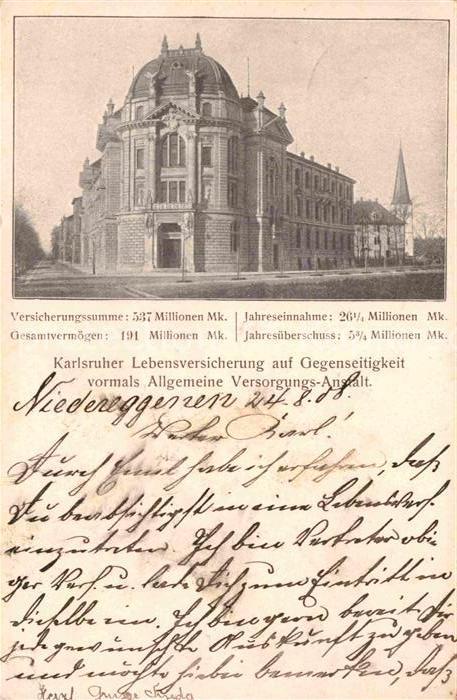 Versicherungssumme: 537 Millionen Mk. | Jahreseinnahme: 26¼ Millionen Mk.
Gesamtvermögen: 191 Millionen Mk. | Jahresüberschuss: 5¾ Millionen Mk.
Karlsruher Lebensversicherung auf Gegenseitigkeit
vormals Allgemeine Versorgungs-Anstalt.
Niedereggenen 24.8.08.
Werter Karl!
Durch Emil habe ich erfahren, daß
Du beabsichtigst in eine Lebensvers.
einzutreten. Ich bin Vertreter obi-
ger Vers. u. lade Dich zum Eintritt in
dieselbe ein. Ich bin gern bereit, Dir
jede gewünschte Auskunft zu geben
und möchte hiebei bemerken, daß
Karl